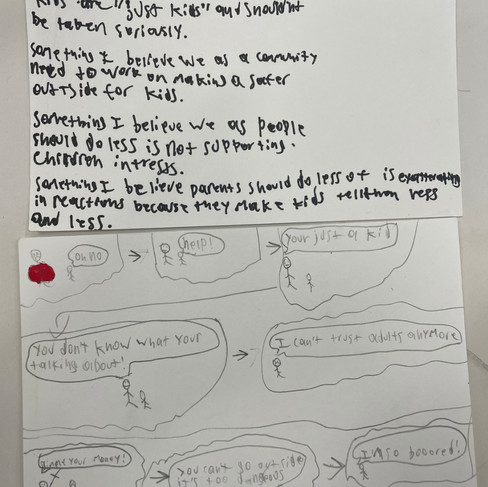 kids are "just kids" and should'nt
be taken soriously.
something I believe we as a community
need to work on making a safer
outside for kids.
Something I believe we as people
should do less is not supporting.
children intrests.
Something I believe parents should do less of is
in reactions because they make kids tell them
and less.
oh no
help!
Your just a kid
You don't know what your
talking about!
I can't trust adults anymore
gimme your money!
You cant go outside
it's too
I'm so booored!